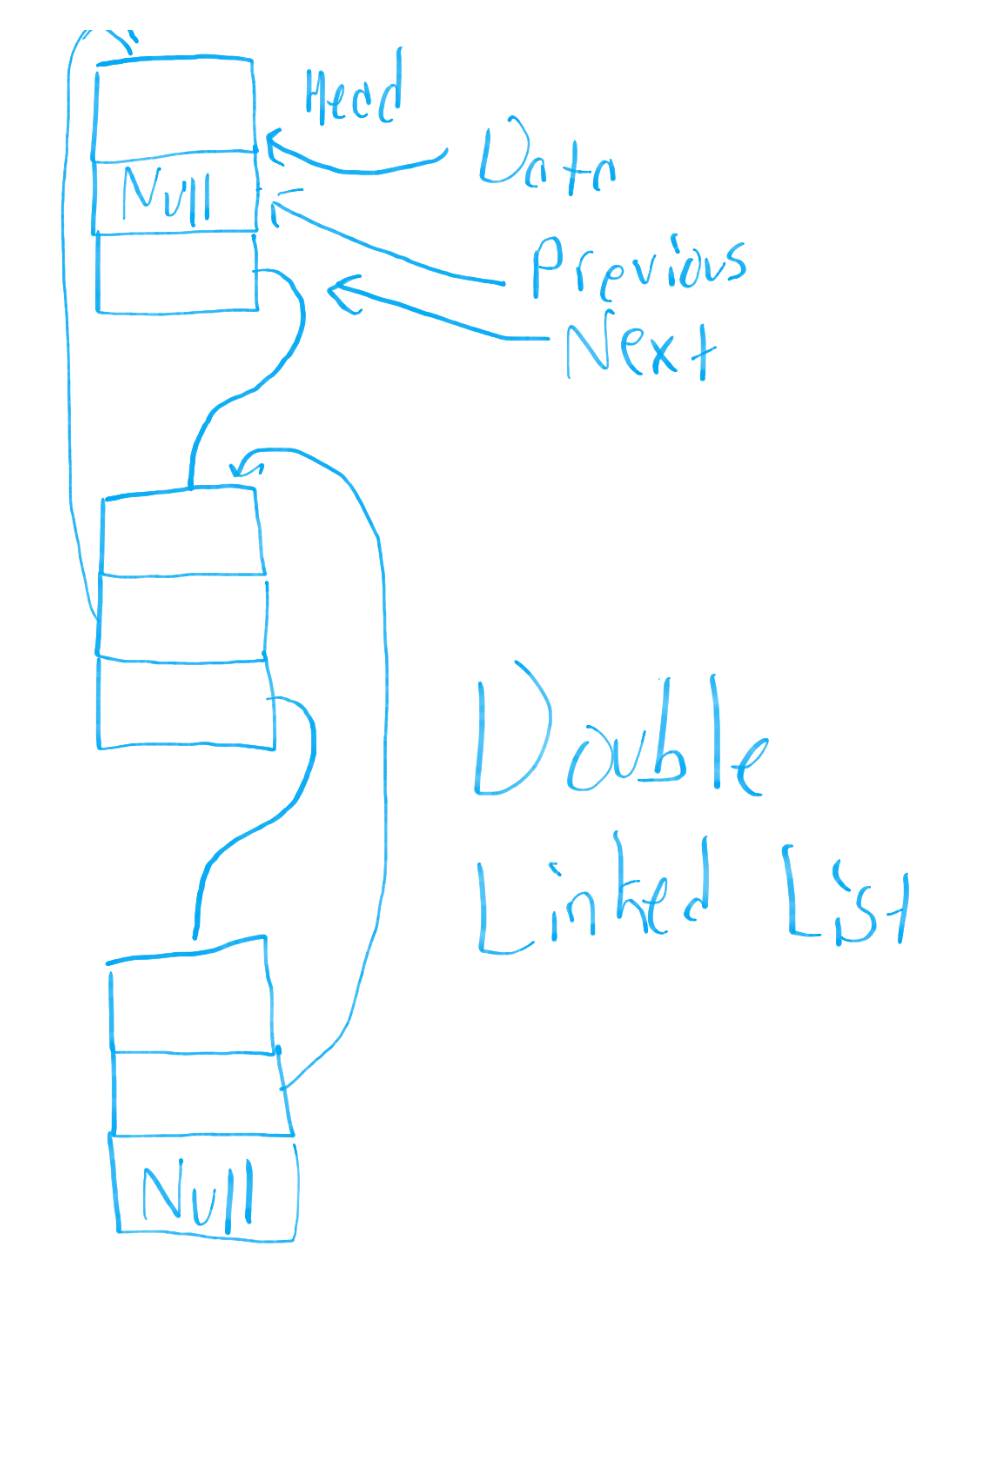 Head
Data
Null
Previous
Next
Double
Linked List
Null